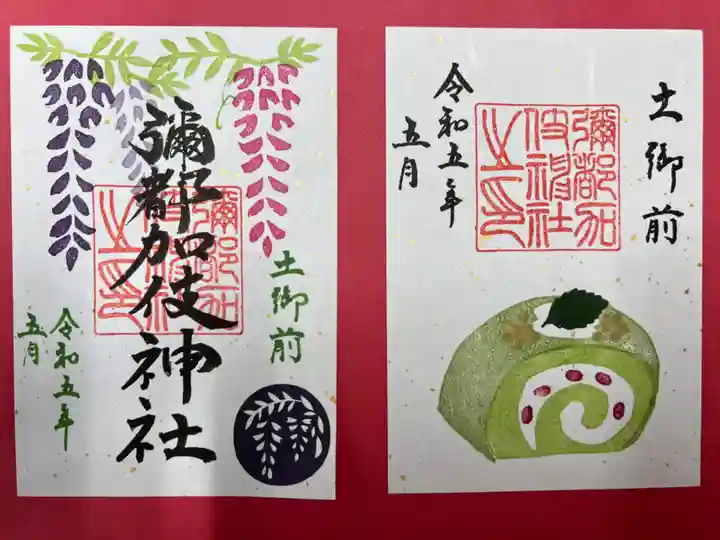 彌都加伎神社
土御前
令和五年
五月
彌都加
伎神社
之印
土御前
令和五年
五月
彌都加
伎神社
之印